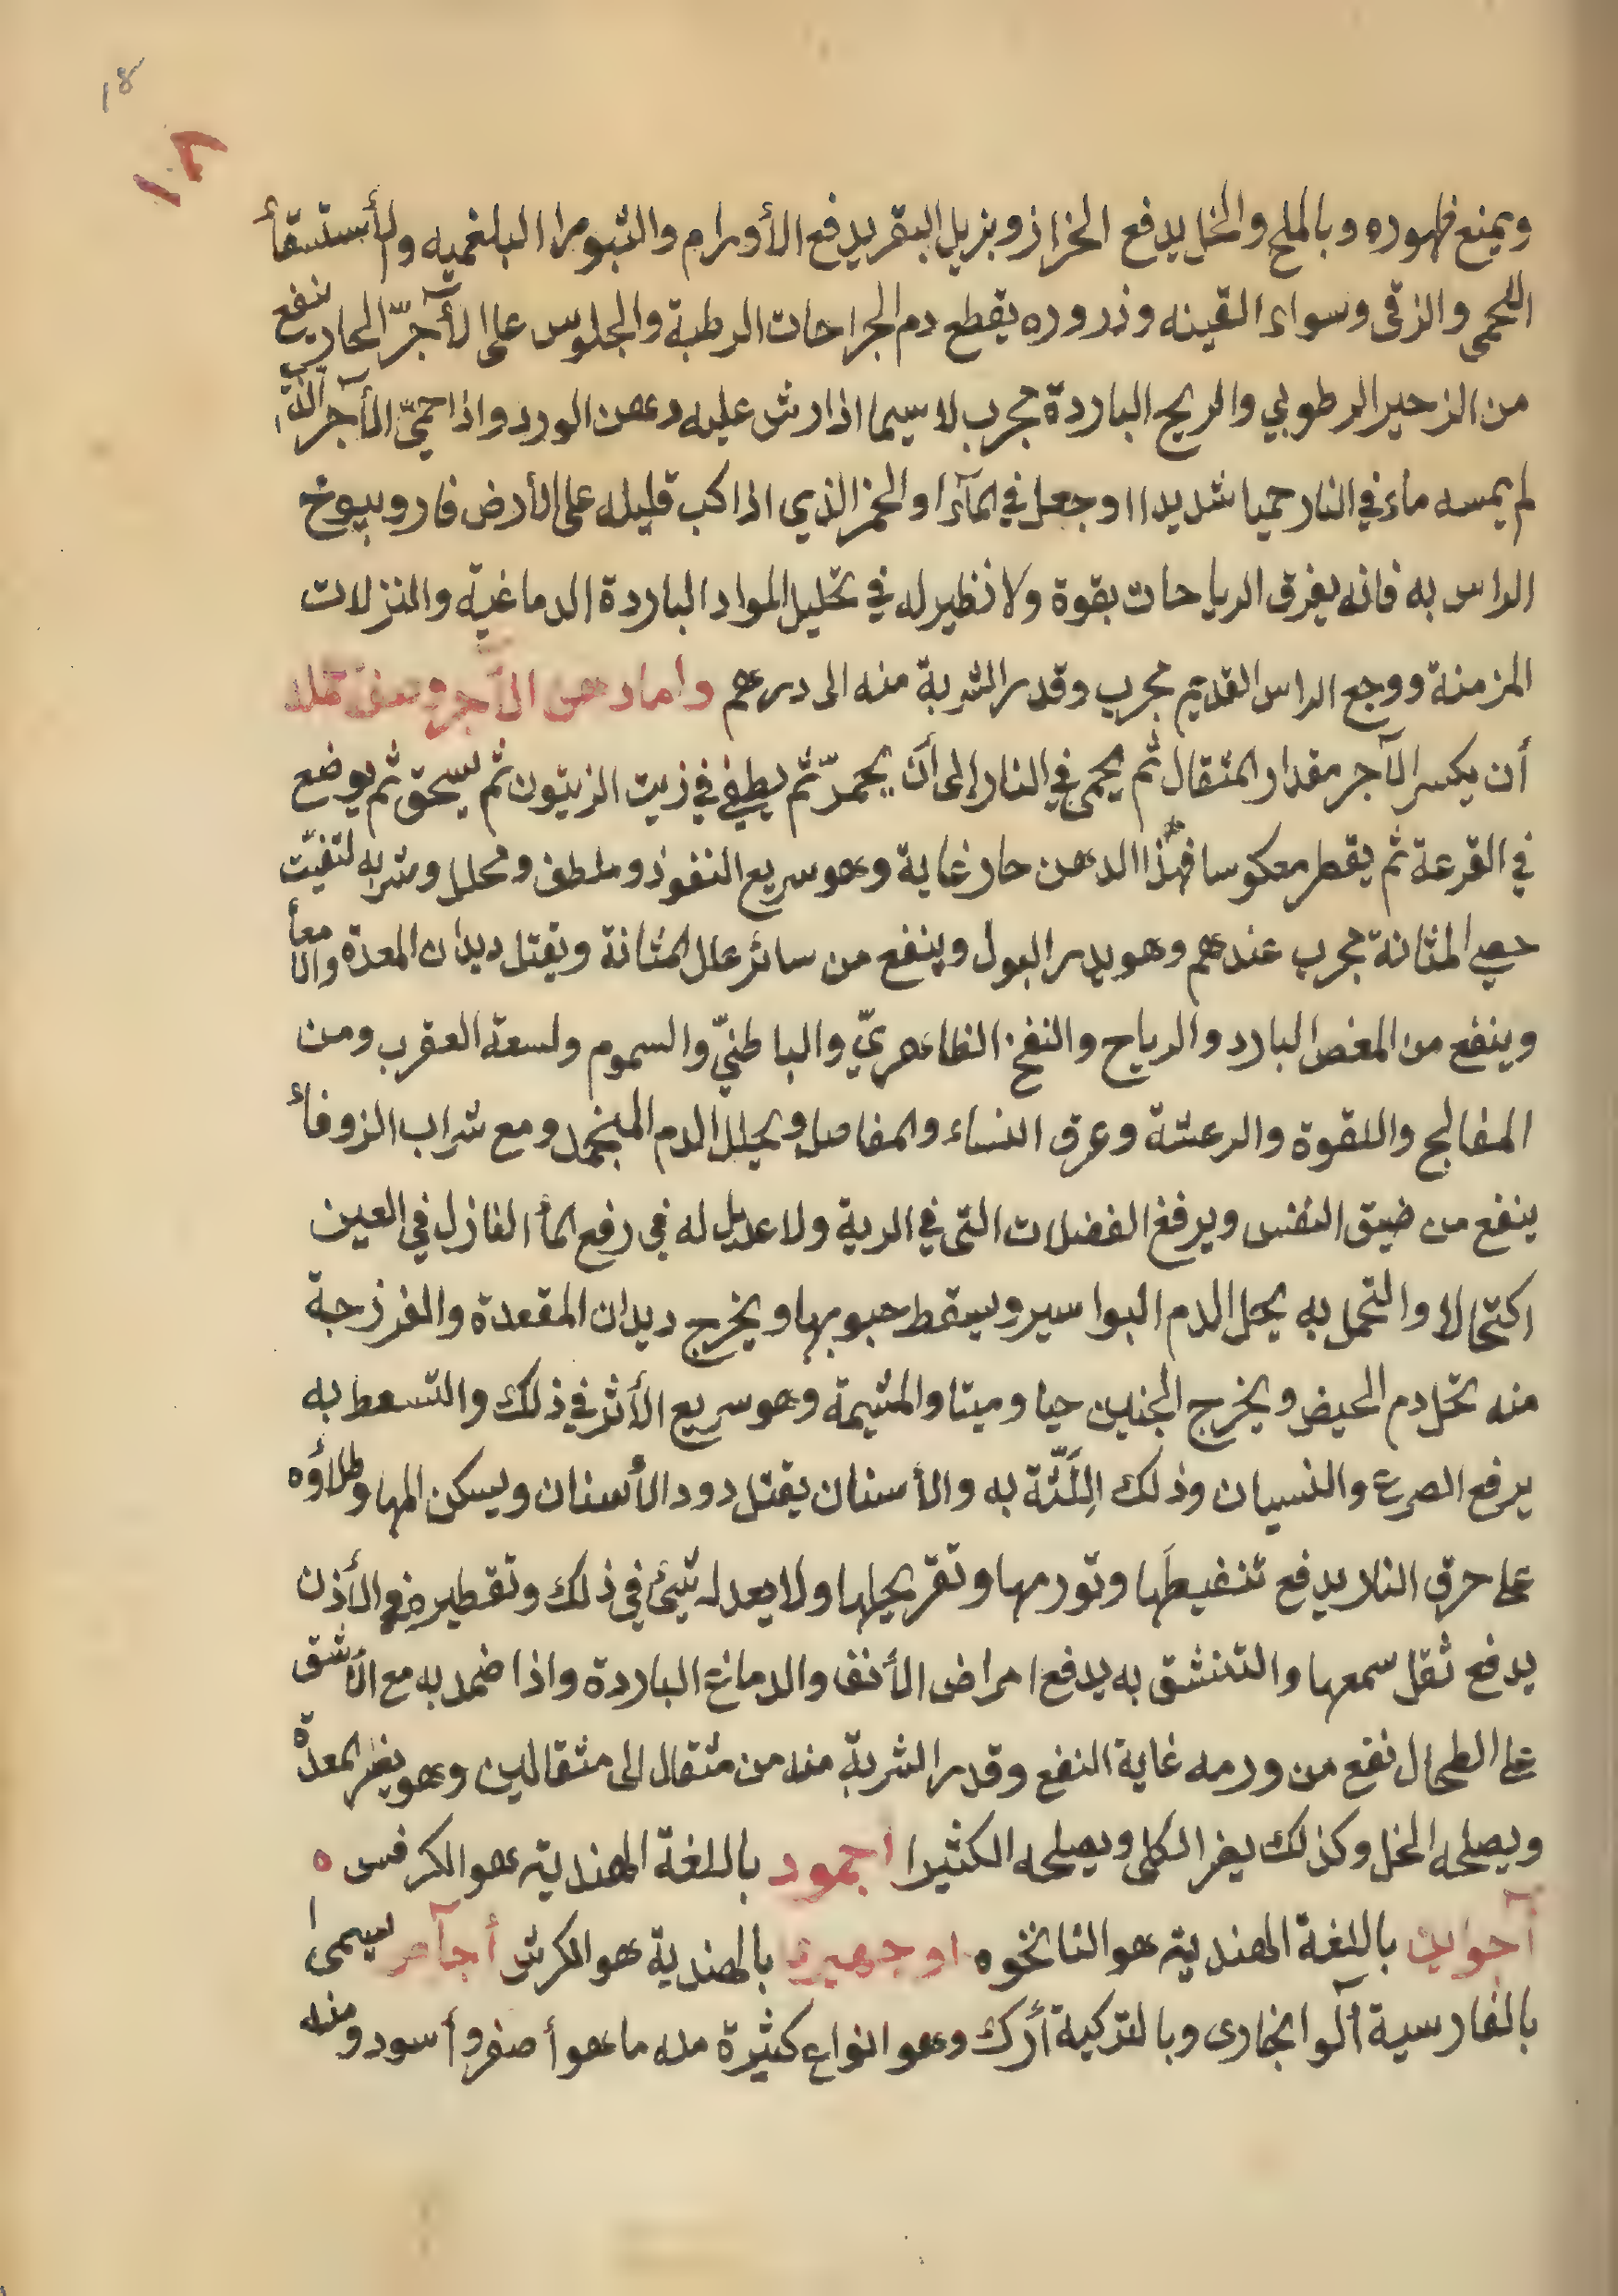 18
١٠٨
ويمنع ظهوره وبالملح والخل يدفع الحزاز وبزبل البقر يدفع الأورام والثبورا البلغميه والأستسقأ
اللحمى والزقى وسواء القينه وذروره يقطع دم الجراحات الرطبة والجلوس على الأجرّ الحار ينفع
من الزحير الرطوبي والريح الباردة مجرب لا سيما اذا رش عليه دهن الورد واذا حمّي الأجر الذي
لم يمسه ماء في النار حميا شديدا اوجعل في المآء او الخمر الذي اذا كب قليله على الأرض فار وبيوخ
الراس به فانه يفرق الرياحات بقوة ولا نظير له في تحليل المواد الباردة الدماغية والنزلات
المزمنة ووجع الراس القديم مجرب وقدر الشربة منه الى درهم واما دهن الآجر وصفة عمله
أن يكسر الآجر مقدار المثقال ثم يحمى في النار الى أن يحمرّ ثم يطفي في زيت الزيتون ثم يسحق ثم يوضع
في القرعة ثم يقطر معكوسا فهذا الدهن حار غاية وهو سريع النفوذ وملطف ومحلل وشربه لتفيّت
حصي المثانة مجرب عندهم وهو يدر البول وينفع من سائر علل المثانة ويقتل ديدان المعدة والامعأ
وينفع من المغص البارد والرياح والنفخ الظاهريّ والباطنيّ والسموم ولسعة العقرب ومن
المفالج واللقوة والرعشة وعرق النساء والمفاصل ويحلل الدم المنجمد ومع شراب الزوفأ
ينفع من ضيق النفس ويرفغ الفضلات التى في الرية ولا عديل له في رفع المأ النازل في العين
اكتحالا والتحمل به يحل الدم البواسير ويسقط حبوبها ويخرج ديدان المقعدة والفرزجة
منه تحل دم الحيض ويخرج الجنين حيا وميتا والمشيمة وهو سريع الأثر في ذلك والتسعط به
يرفع الصرع والنسيان وذلك اللَثّة به والأسنان يقتل دود الأسنان ويسكن المها وطلاؤه
على حرق النار يدفع تنفيطها وتورمها وتقريحها ولا يعدله شيئ في ذلك وتقطيره في الأذن
يدفع ثقل سمعها والتنشق به يدفع امراض الأنف والدماغ الباردة واذا ضمد به مع الأشق
على الطحال نفع من ورمه غاية النفع وقدر الشربة منه من مثقال الى مثقالين وهو يضر المعدة
ويصلحه الخل وكذلك يضر الكلى ويصلحه الكثيرا اجمود باللغة الهندية هو الكرفس ه
آجواين باللغة الهندية هو النانخوه اوجهيرا بالهندية هو الكرش أجآص يسمى ا
بالفارسية آلوا بخارى وبالتركية أرك وهو انواع كثيرة منه ما هو أصفر وأسود ومنه